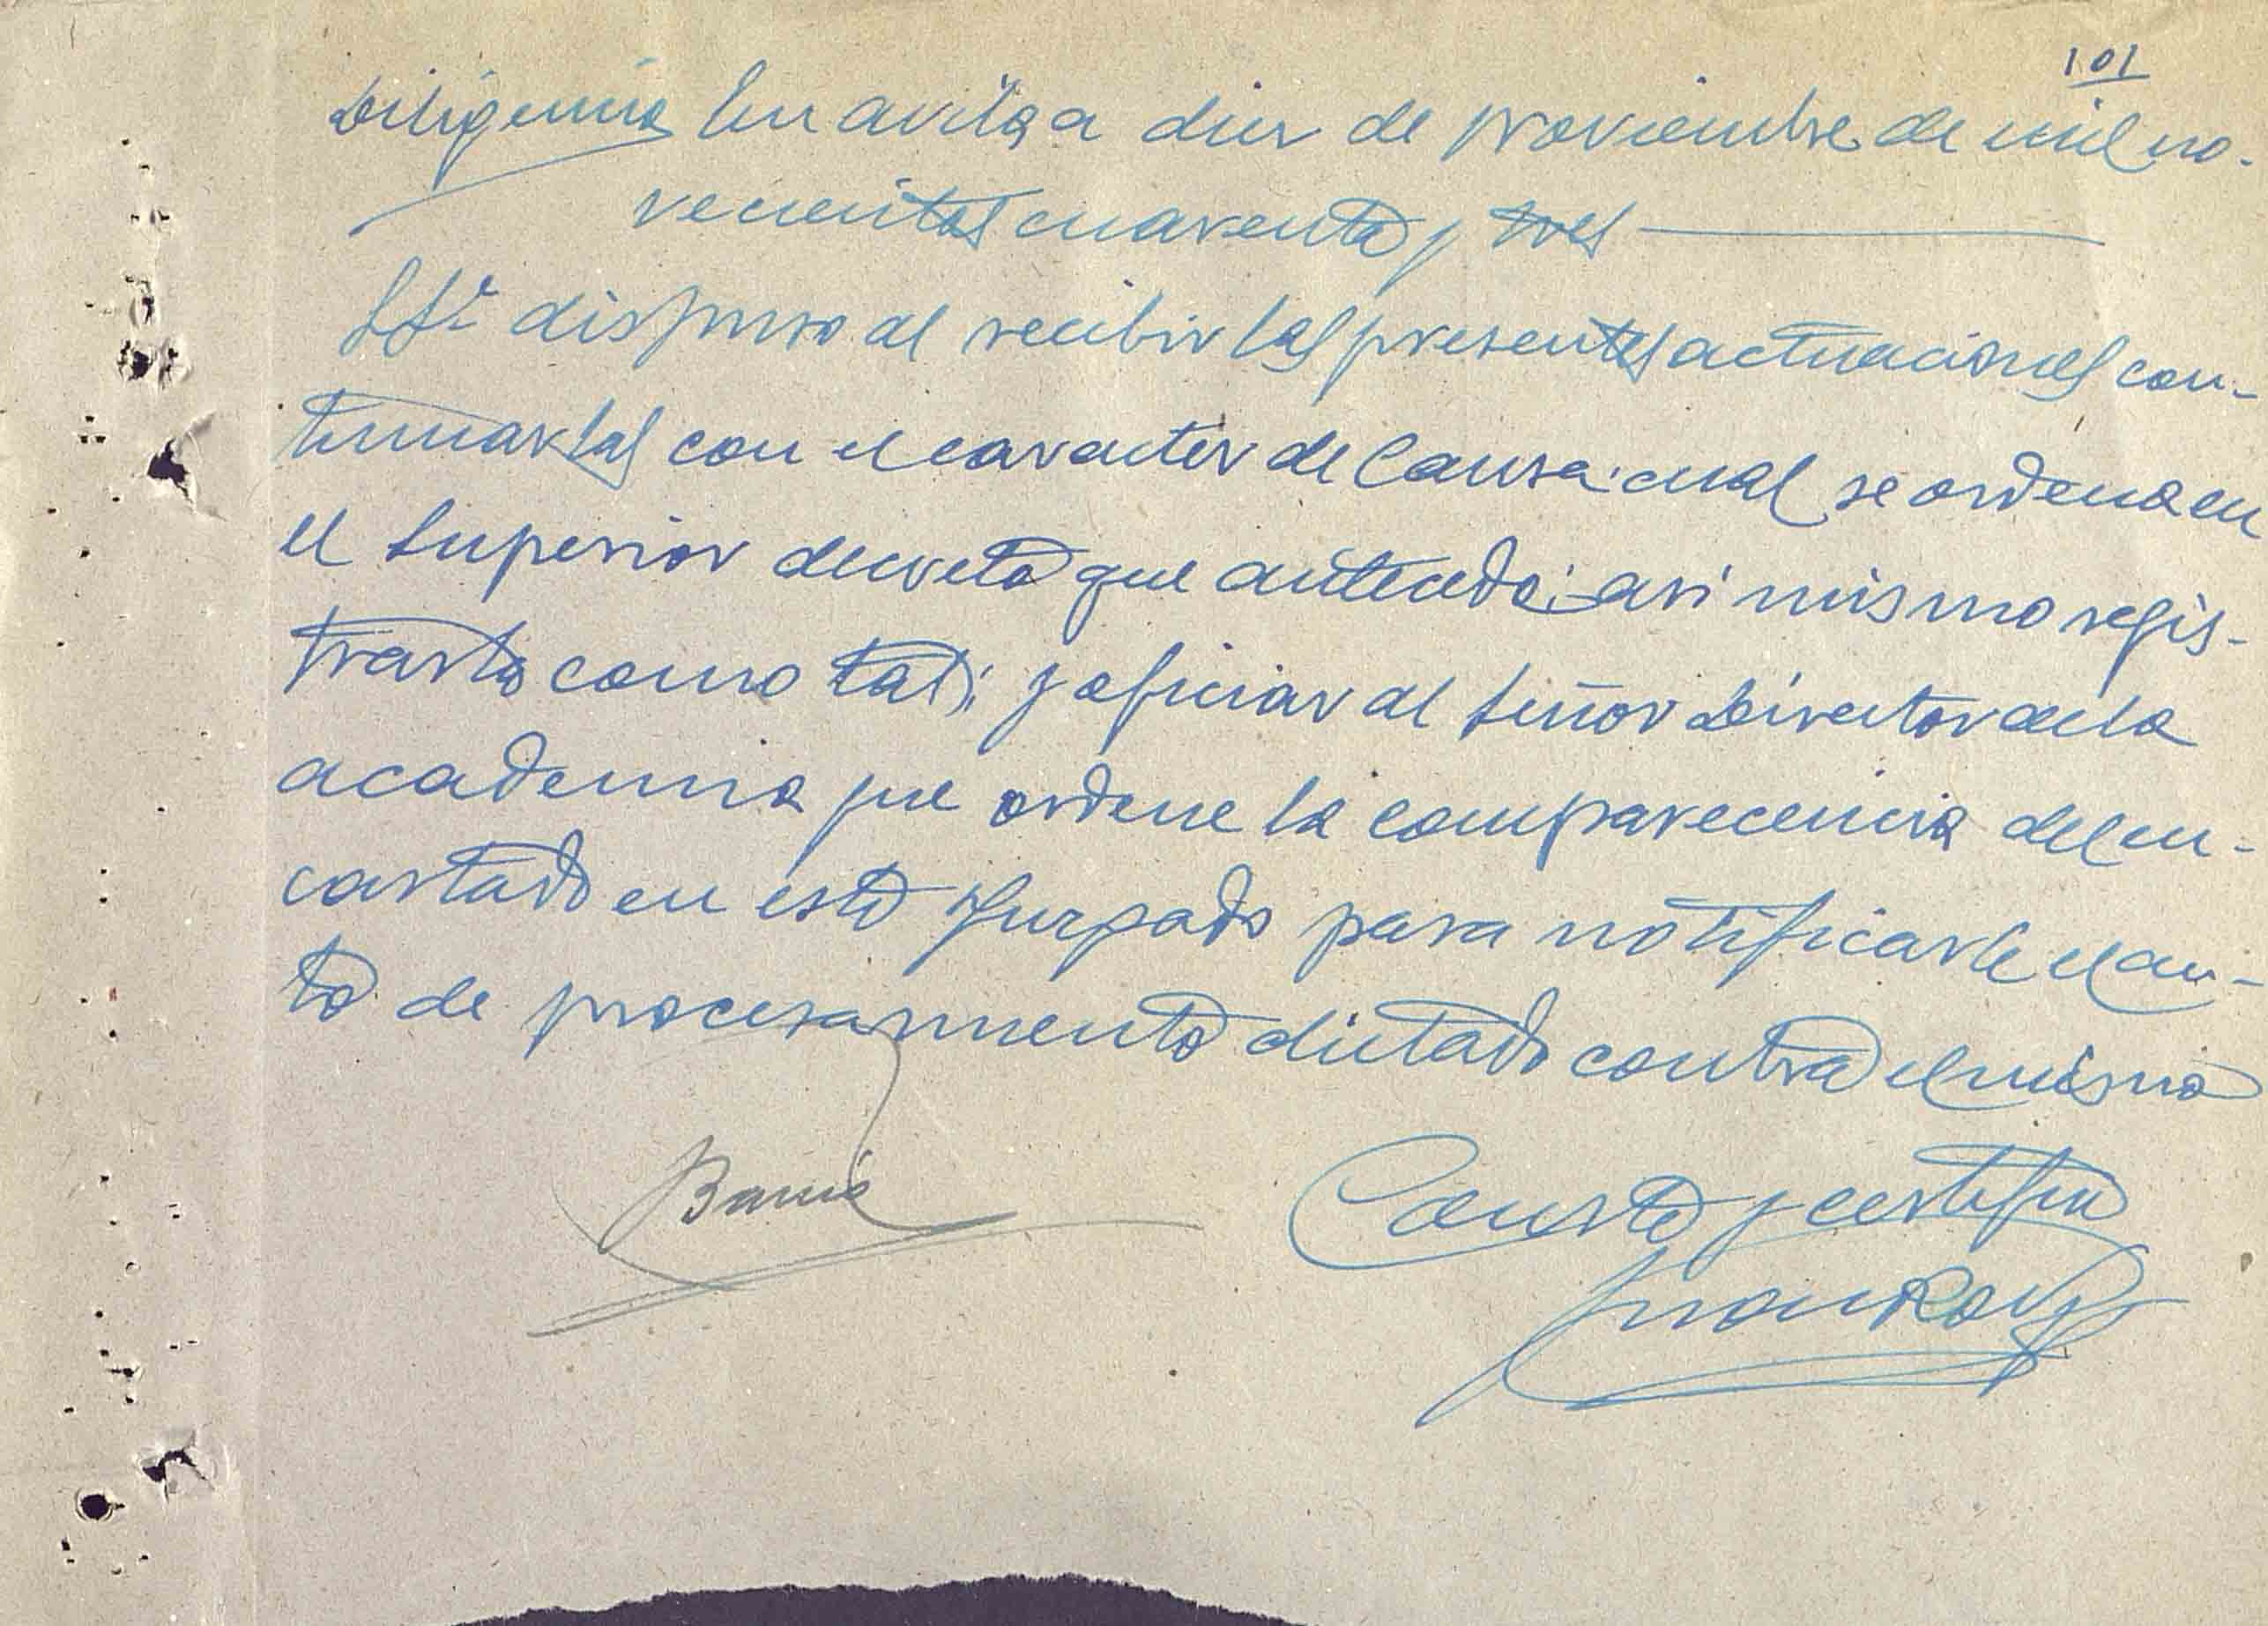 101
Diligencia En Avila a diez de noviembre de mil no-
vecientos cuarenta y tres
SSª dispuso al recibir las presentes actuaciones con-
tinuarlas con el caracter de Causa cual se ordena en
el Superior decreto que antecede; asi mismo regis-
trarla como tal; y oficiar al Señor Director de la
academia que ordene la comparecencia del en-
cartado en este Juzgado para notificarle el au-
to de procesamiento dictado contra el mismo
Consta y certifico